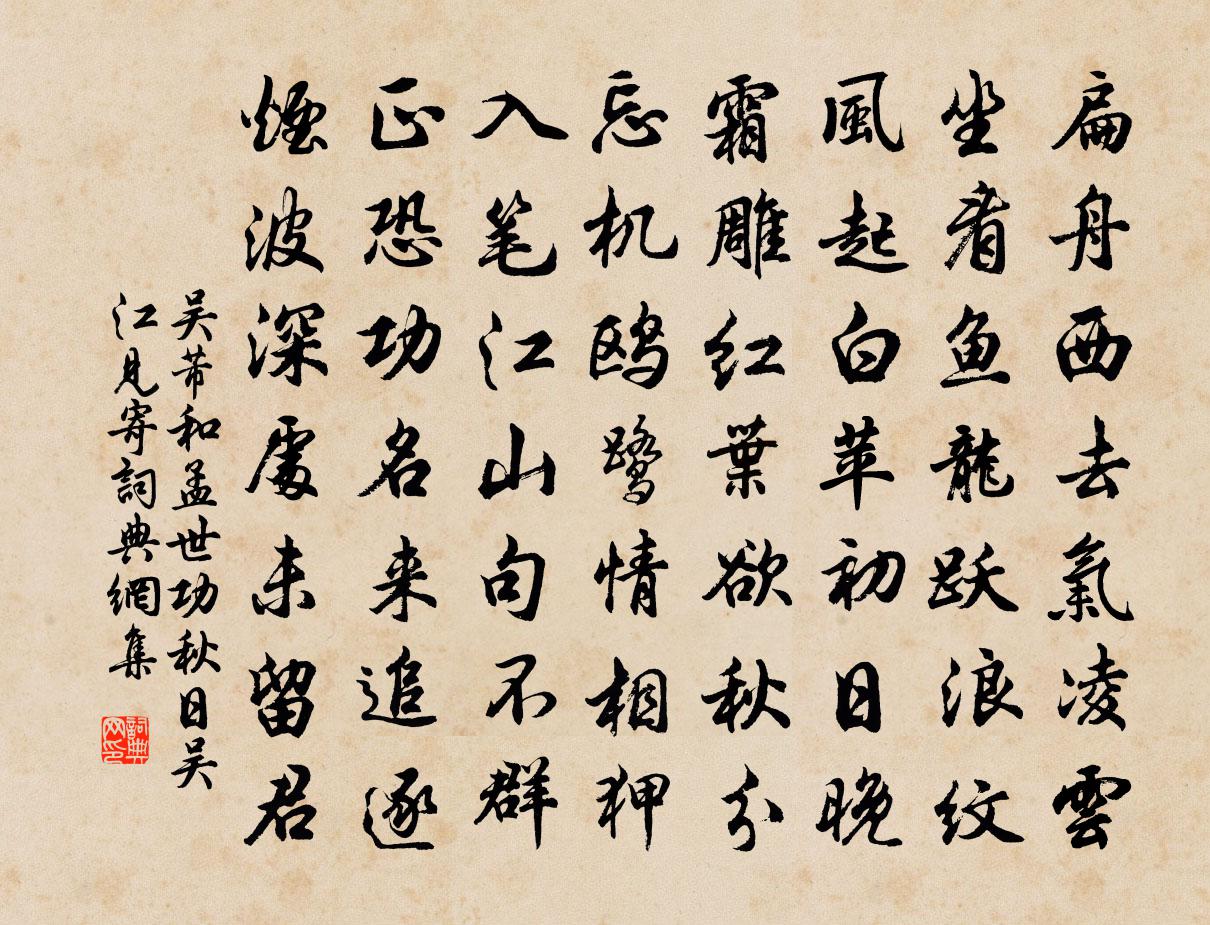 扁舟西去氣凌雲
坐看鱼龍跃浪纹
風起白苹初日晚
霜雕红葉欲秋分
忘机鸥鹭情相狎
入笔江山句不群
正恐功名来追逐
煙波深處未留君
吴芾和孟世功秋日吴
江見寄詞典網集
詞典网印